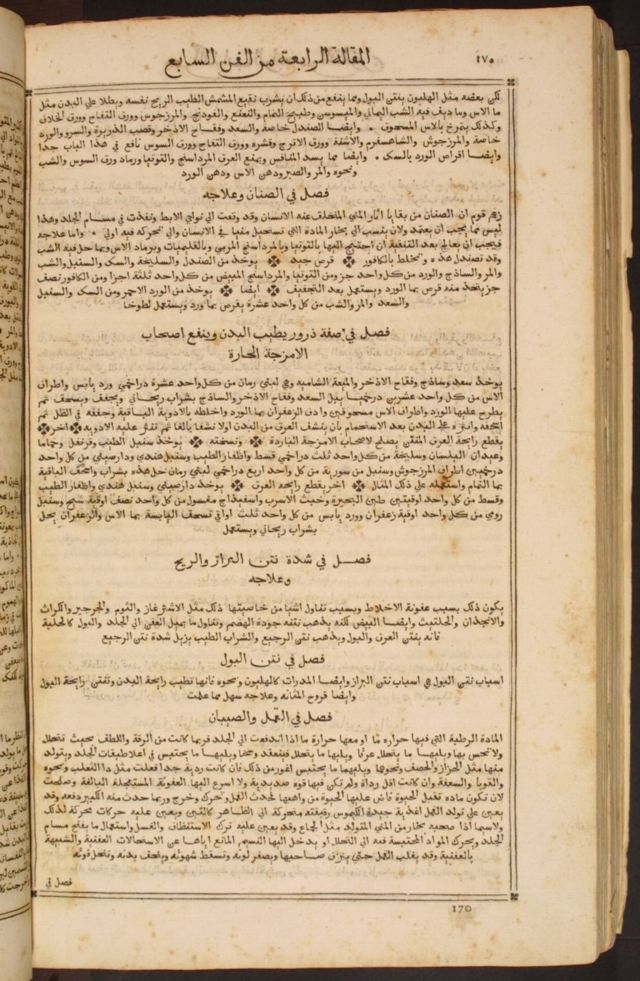 ١٧٠ المقالة الرابعة من الفن السابع
لكن بعضه مثل الهليون ينتن البول ومما ينفع من ذلك ان يشرب نقيع المشمش الطيب الريح نفسه ويطلا على البدن مثل
ما الاس وما ديف فيه الشب اليماني والميسوسن وطبيخ النمام والنعنع والفودنج والمرزجوش وورق التفاح وورق الخلاف
وكذلك يتمرخ بالاس المسحوق ٭ وايضا الصندل خاصة والسعد وفقاح الاذخر وقصب الذريرة والسرو والورد
خاصة والمرزجوش والشاهسفرم والاشنة وورق الاترج وقشره وورق التفاح وورق السوس نافع في هذا الباب جدا
وايضا اقراص الورد بالسك ٭ وايضا مما يسد المنافس ويمنع العرق المرداسنج والتوتيا ورماد ورق السوس والشب
ونحوه والمر والصبر ودهن الاس ودهن الورد
فصل في الصنان وعلاجه
زعم قوم ان الصنان من بقايا اثار المني المتخلق عنه الانسان وقد وقعت الى نواحي الابط ونفذت في مسام الجلد وهذا
ليس مما يجب ان يعتمد ولان ينسب الى بخار المادة التي تستحيل منيا في الانسان والى تحركه فيه اولى ٭ واما علاجه
فيجب ان يعالج بعد التنقية ان احتيج اليها بالتوتيا وبالمرداسنج المربى وبالقليميات وبرماد الاس وبما حل فيه الشب
وقد تصندل هذه وتخلط بالكافور ٭ قرص جيد ٭ يوخذ من الصندل والسليخة والسك والسنبل والشب
والمر والساذج والورد من كل واحد جز ومن التوتيا والمرداسنج المبيض من كل واحد ثلثة اجزا ومن الكافور نصف
جز يتخذ منه قرص بما الورد ويستعمل بعد التجفيف ٭ ايضا ٭ يوخذ من الورد الاحمر ومن السك والسنبل
والسعد والمر والشب من كل واحد عشرة يقرص بما ورد ويستعمل لطوخا
فصل في صفة ذرور يطيب البدن وينفع اصحاب
الامزجة الحارة
يوخذ سعد وساذج وفقاح الاذخر والميعة الشامية وهي لبنى رمان من كل واحد عشرة دراخمي ورد يابس واطراف
الاس من كل واحد عشرين درخميا يبل السعد وفقاح الاذخر والساذج بشراب ريحاني ويجفف ويسحق ثم
يطرح عليها الورد واطراف الاس مسحوقين واذن الزعفران بما الورد واخلطه بالادوية الباقية وجففه في الظل ثم
اسحقه وانثره على البدن بعد الاستحمام بان ينشف العرق من البدن اولا نشفا بالغا ثم تنثر عليه الادوية ٭ اخر ٭
يقطع رايحة العرق المنتن يصلح لاصحاب الامزجة الباردة ٭ ونسخته ٭ يوخذ سنبل الطيب وقرنفل وحماما
وعيدان البلسان وسليخة من كل واحد ثلث دراخمي قسط واظفار الطيب وسنبل هندي ودارصيني من كل واحد
درخمين اطراف المرزجوش وسنبل من سورية من كل واحد اربع دراخمي لبنى رمان حل هذه بشراب واسحق الباقية
بما النمام واستعمله على ذلك المثال ٭ اخر يقطع رايحة العرق ٭ يوخذ دارصيني وسنبل هندي واظفار الطيب
وقسط من كل واحد اوقيتين طين البحيرة وخبث الاسرب واسفيذاج مغسول من كل واحد نصف اوقية شيح وسنبل
رومي من كل واحد اوقية زعفران وورد يابس من كل واحد ثلث اواقي تسحق اليابسة بما الاس والزعفران يحل
بشراب ريحاني ويستعمل
فصل في شدة نتن البراز والريح
وعلاجه
يكون ذلك بسبب عفونة الاخلاط وبسبب تناول اشيا من خاصيتها ذلك مثل الاشترغاز والثوم والجرجير والكراث
والانجدان والحلتيث وايضا البيض لكنه يذهب نتنه جودة الهضم وتناول ما يميل العفن الى الجلد والبول كالحلبة
فانه ينتن العرق والبول ويذهب نتن الرجيع والشراب الطيب يزيل شدة نتن الرجيع
فصل في نتن البول
اسباب نتن البول هي اسباب نتن البراز وايضا المدرات كالهليون ونحوه فانها تطيب رايحة البدن وتنتن رايحة البول
وايضا قروح المثانة وعلاجه سهل مما علمت
فصل في القمل والصيبان
المادة الرطبة التي فيها حرارة ما او معها حرارة ما اذا اندفعت الى الجلد فربما كانت من الرقة واللطف بحيث تتحلل
ولا تحس بها ويليها ما يتحلل عرقا ويليها ما يتحلل فينعقد وسخا ويليها ما يحتبس في اعلا طبقات الجلد ويتولد
منها مثل الحزاز والحصف ونحوهما ويليهما ما يحتبس اغور من ذلك فان كانت ردية جدا فعلت مثل دا الثعلب ونحوه
والقوبا والسعفة وان كانت اقل رداة ولم تكن فيها قوة صديدية ولا اسرع اليها العفونة المستعجلة البالغة وصلحت
لان تكون مادة تقبل الحيوة فاض عليها الحيوة من واهبها فحدث القمل وتحرك وخرج وربما حدث منه الكبير دفعه وقد
يعين على تولد القمل اغذية جيدة الكيموس رقيقته متحركة الى الظاهر كالتين ويعين عليه حركات محركة لذلك
ولاسيما اذا صحبه بخار من المني المتولد مثل الجماع وقد يعين عليه ترك الاستنظاف والغسل واستعمال ما يفتح مسام
الجلد ويحرك المواد المحتبسة فيه الى التحلل او يدخل اليها النسيم المانع اياها عن الاستحالات العفنية والشبيهة
بالعفنية وقد يغلب القمل حتى ينزف صاحبها ويصفر لونه وتسقط شهوته وينحف بدنه وتنحل قوته
فصل في
170